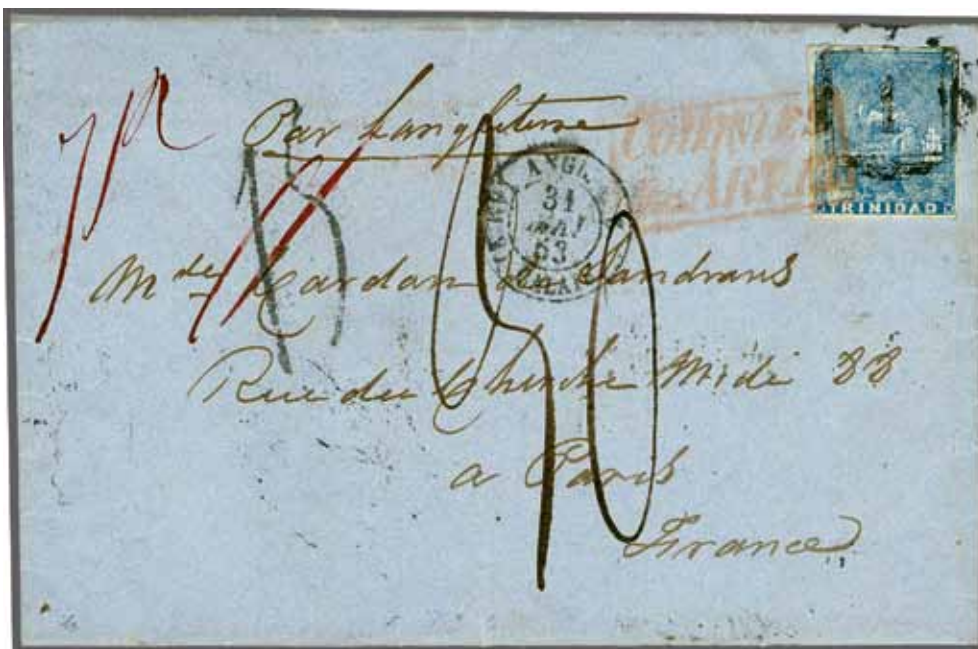 Par Langleterre
COLONIES
ART.
1
TRINIDAD
ANGL.
31
MAI
53
Mde Cardan de Sandrans
Rue du Cherche Midi 88
a Paris
France